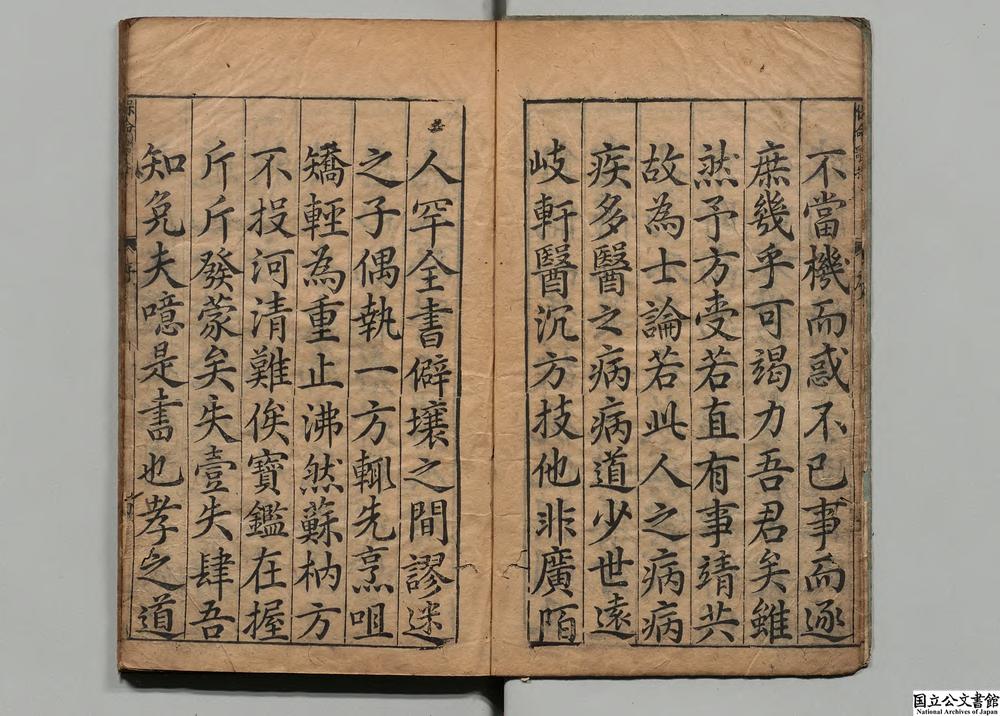 不當機而惑不已事而逐
庶幾乎可竭力吾君矣雖
然予方受若直有事靖共
故為士論若此人之病病
疾多醫之病病道少世遠
岐軒醫沉方技他非廣陌
人罕全書僻壤之間謬迷
之子偶執一方輒先烹咀
矯輕為重止沸然蘇枘方
不投河清難俟寶鑑在握
斤斤發蒙矣失壹失肆吾
知免夫噫是書也孝之道
国立公文書館
National Archives of Japan